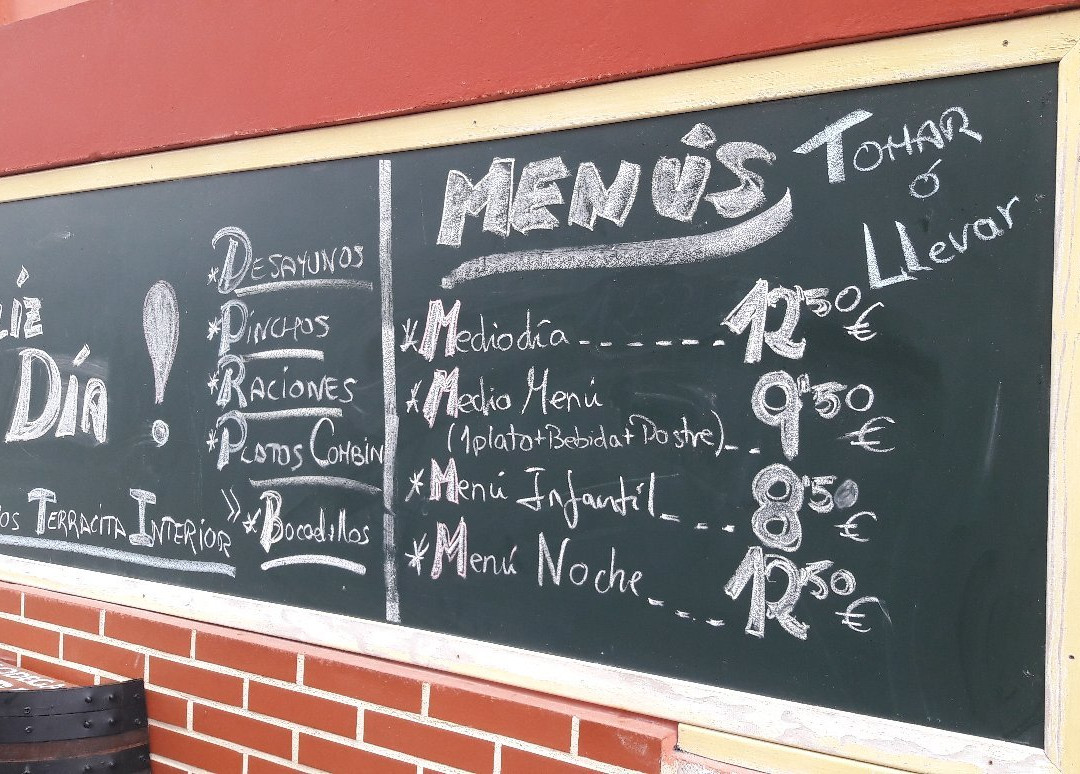 DÍA !
* DESAYUNOS
* PINCHOS
* RACIONES
* PLATOS COMBIN
TERRACITA INTERIOR » * Bocadillos
MENÚS
TOMAR
ó
Llevar
* Mediodía ------ 12'50 €
* Medio Menú 9'50 €
(1plato+Bebida+Postre)--
* Menú Infantil --- 8'50 €
* Menú Noche --- 12'50 €